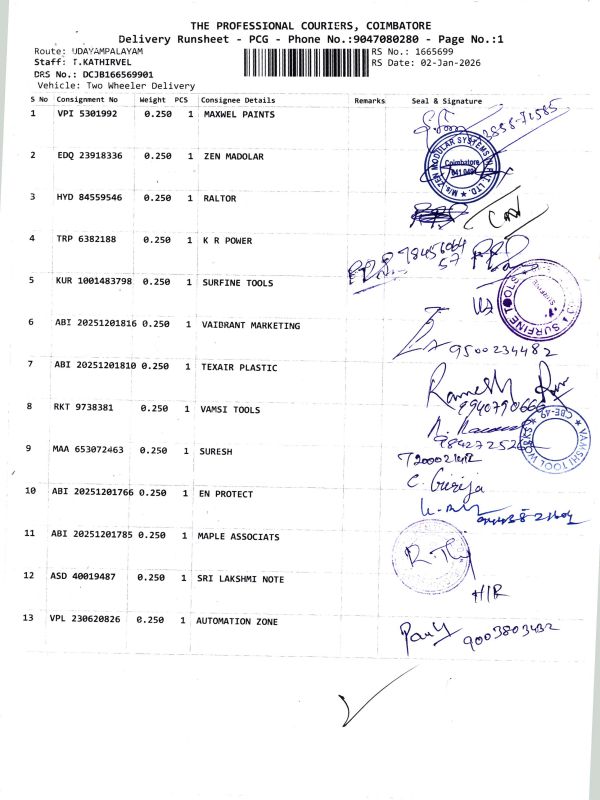 THE PROFESSIONAL COURIERS, COIMBATORE
Delivery Runsheet - PCG - Phone No.:9047080280 - Page No.:1
Route: UDAYAMPALAYAM RS No.: 1665699
Staff: T.KATHIRVEL RS Date: 02-Jan-2026
DRS No.: DCJB166569901
Vehicle: Two Wheeler Delivery
S No Consignment No Weight PCS Consignee Details Remarks Seal & Signature
1 VPI 5301992 0.250 1 MAXWEL PAINTS
2 EDQ 23918336 0.250 1 ZEN MADOLAR
M/s. ZEN MODULAR SYSTEMS PVT. LTD. Coimbatore
3 HYD 84559546 0.250 1 RALTOR
4 TRP 6382188 0.250 1 K R POWER
5 KUR 1001483798 0.250 1 SURFINE TOOLS
SURFINE TOOLS
6 ABI 20251201816 0.250 1 VAIBRANT MARKETING
9500234482
7 ABI 20251201810 0.250 1 TEXAIR PLASTIC
Ramesh
9940790666
8 RKT 9738381 0.250 1 VAMSI TOOLS
VAMSHI TOOL WORKS CBE-49
9 MAA 653072463 0.250 1 SURESH
C. Girija
10 ABI 20251201766 0.250 1 EN PROTECT
11 ABI 20251201785 0.250 1 MAPLE ASSOCIATS
12 ASD 40019487 0.250 1 SRI LAKSHMI NOTE
H/R
13 VPL 230620826 0.250 1 AUTOMATION ZONE
9003803432